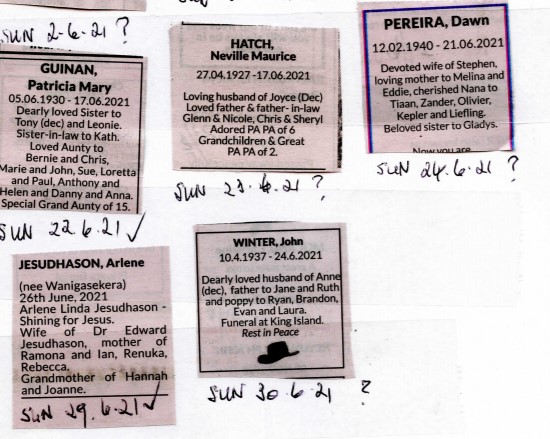 SUN 2-6-21 ?
GUINAN,
Patricia Mary
05.06.1930 - 17.06.2021
Dearly loved Sister to
Tony (dec) and Leonie.
Sister-in-law to Kath.
Loved Aunty to
Bernie and Chris,
Marie and John, Sue, Loretta
and Paul, Anthony and
Helen and Danny and Anna.
Special Grand Aunty of 15.
SUN 22.6.21 ✓
HATCH,
Neville Maurice
27.04.1927 -17.06.2021
Loving husband of Joyce (Dec)
Loved father & father- in-law
Glenn & Nicole, Chris & Sheryl
Adored PA PA of 6
Grandchildren & Great
PA PA of 2.
SUN 23.6.21 ?
PEREIRA, Dawn
12.02.1940 - 21.06.2021
Devoted wife of Stephen,
loving mother to Melina and
Eddie, cherished Nana to
Tiaan, Zander, Olivier,
Kepler and Liefling.
Beloved sister to Gladys.
Now you are
SUN 24.6.21 ?
JESUDHASON, Arlene
(nee Wanigasekera)
26th June, 2021
Arlene Linda Jesudhason -
Shining for Jesus.
Wife of Dr Edward
Jesudhason, mother of
Ramona and Ian, Renuka,
Rebecca.
Grandmother of Hannah
and Joanne.
SUN 29.6.21 ✓
WINTER, John
10.4.1937 - 24.6.2021
Dearly loved husband of Anne
(dec), father to Jane and Ruth
and poppy to Ryan, Brandon,
Evan and Laura.
Funeral at King Island.
Rest in Peace
SUN 30.6.21 ?